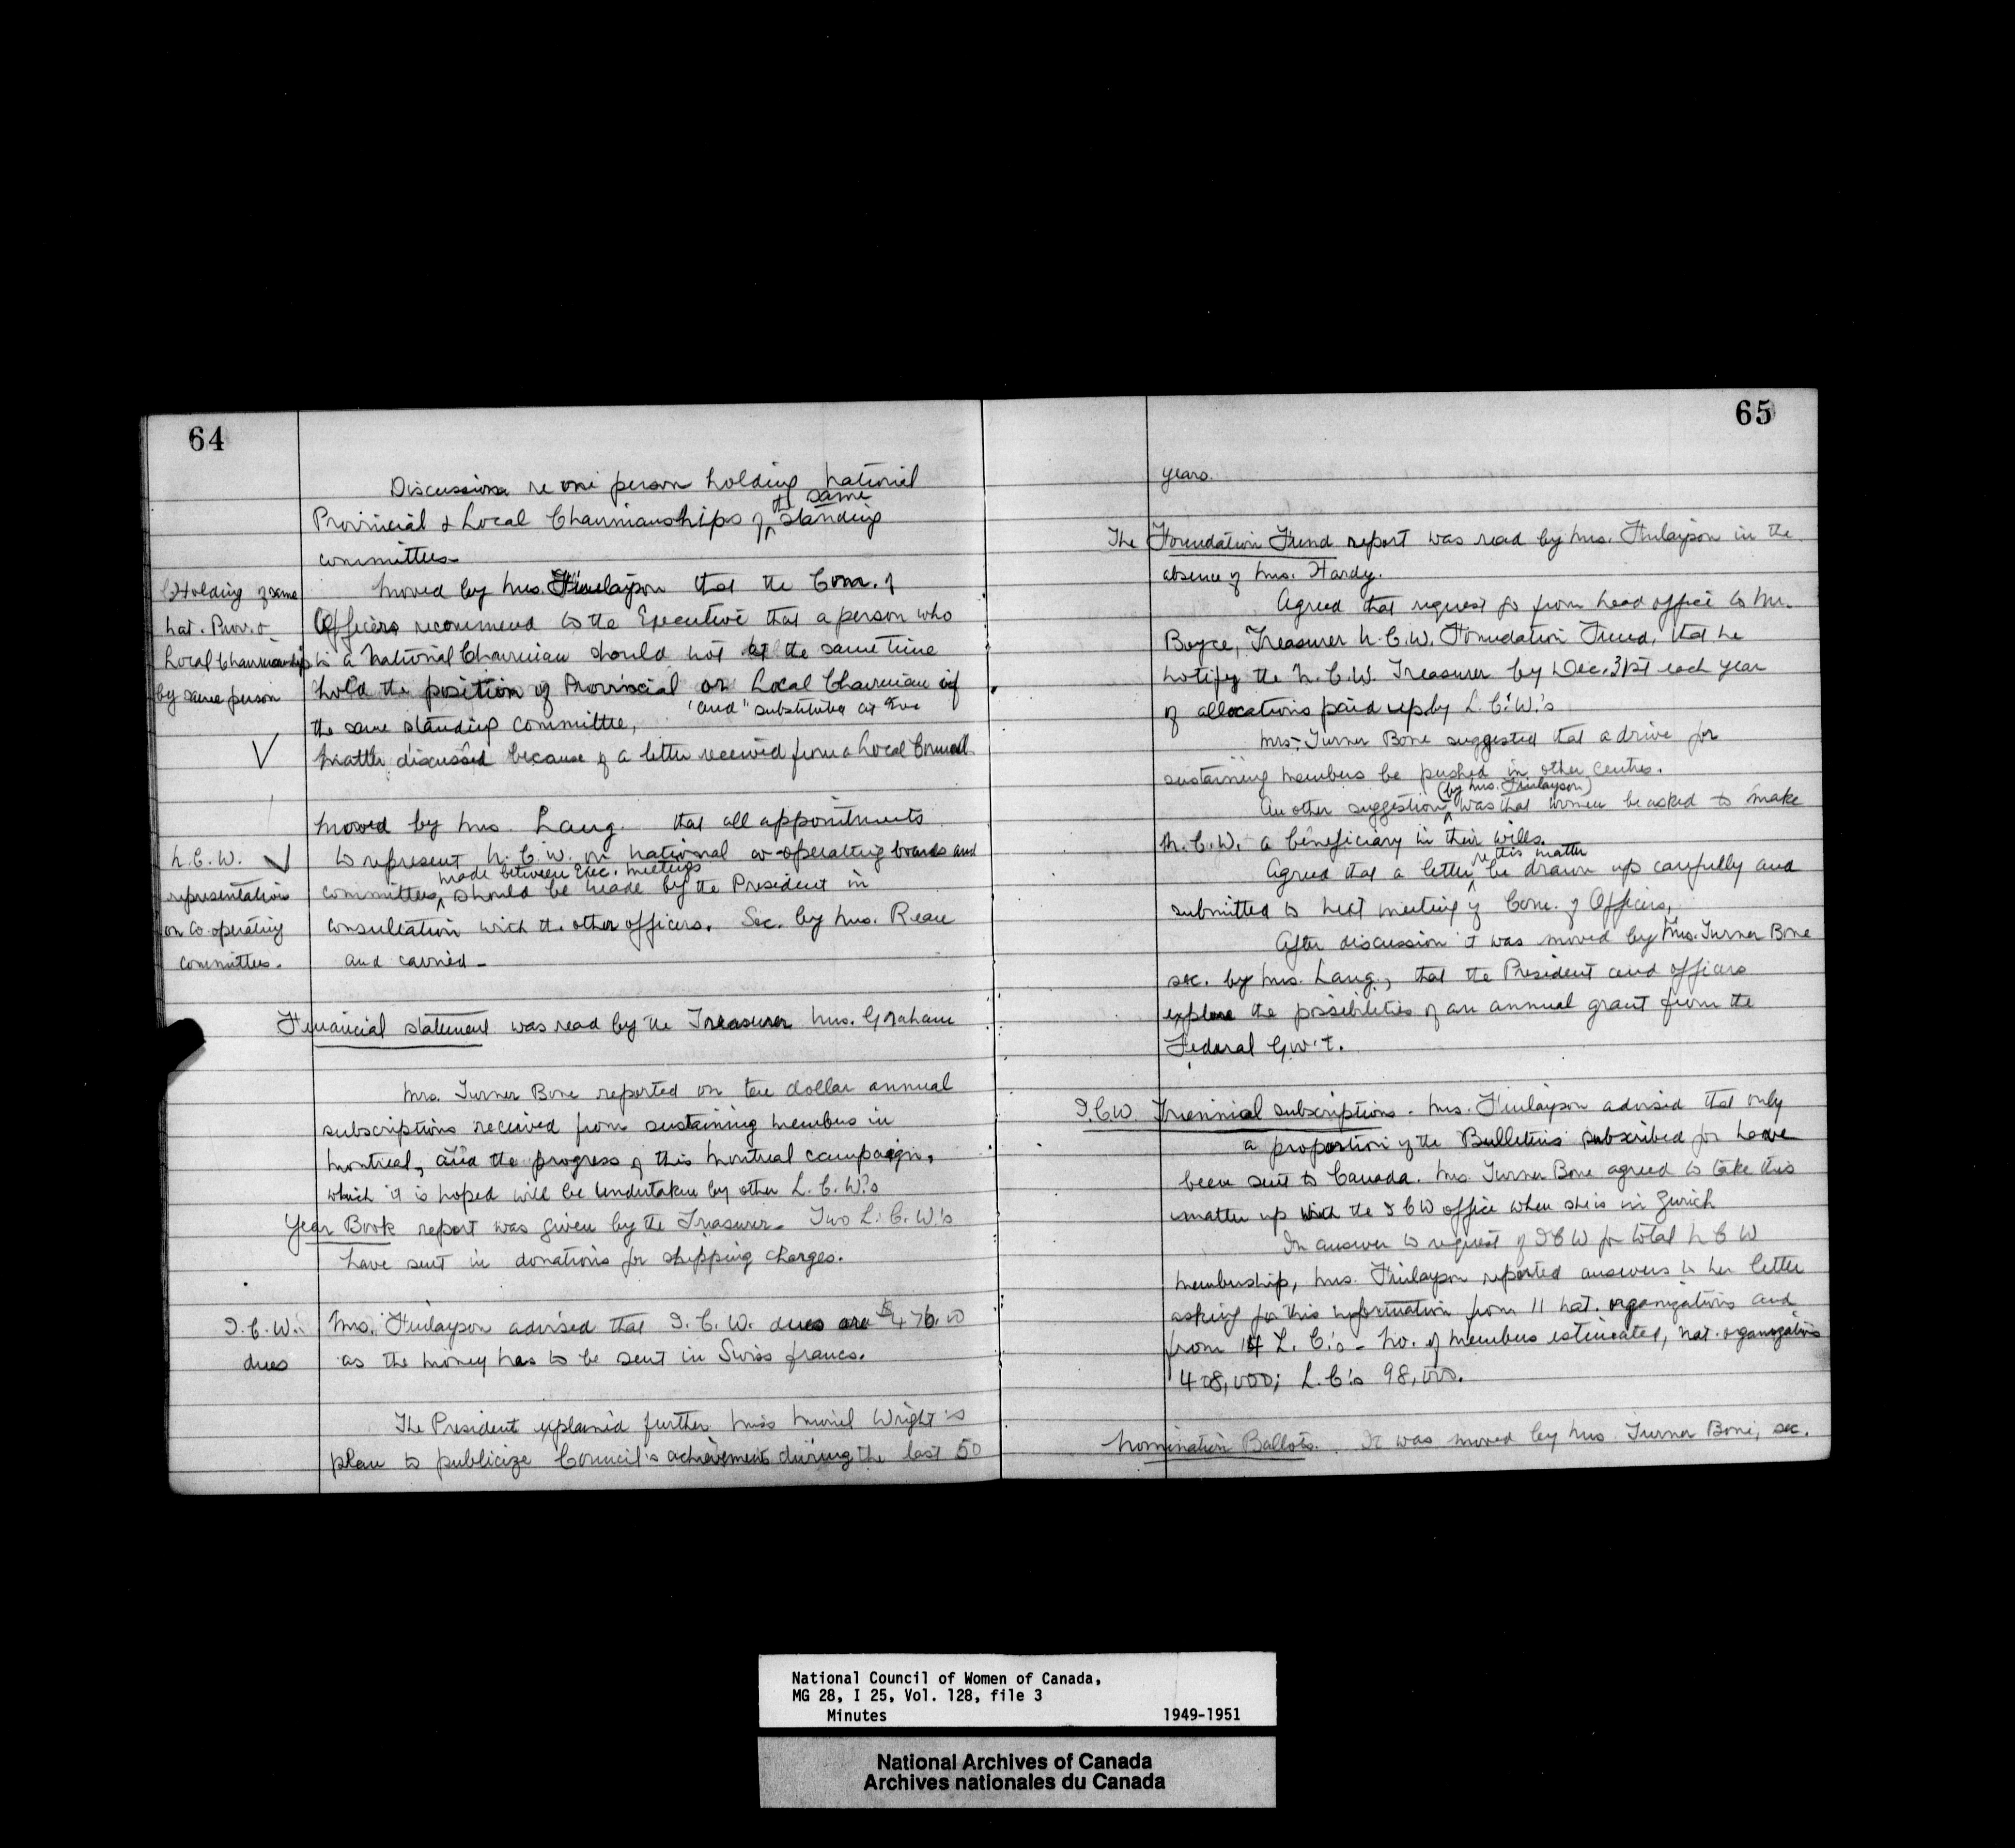 64
Discussion re one person holding National
Provincial & Local Chairmanships of the same standing
committees
Holding of same
Nat. Prov. &
Local Chairmanship
by same person
Moved by Mrs. Finlayson that the Com. of
Officers recommend to the Executive that a person who
is a National Chairman should not at the same time
hold the position of Provincial or Local Chairman of
"and" substituted at Exe
the same standing committee,
Matter discussed because of a letter received from a Local Council
Moved by Mrs. Lang. that all appointments
N.C.W.
representation
on co-operating
committees.
to represent N.C.W. on national co-operating boards and
made between Exec. meetings
committees, should be made by the President in
consultation with the other officers. Sec. by Mrs. Reae
and carried -
Financial statement was read by the Treasurer Mrs. Graham
Mrs. Turner Bone reported on ten dollar annual
subscriptions received from sustaining members in
Montreal, and the progress of this Montreal campaign,
which it is hoped will be undertaken by other L.C.W.'s
Year Book report was given by the Treasurer - Two L.C.W.'s
have sent in donations for shipping charges.
I.C.W.
dues
Mrs. Finlayson advised that I.C.W. dues are $476.00
as the money has to be sent in Swiss francs.
The President explained further Miss Muriel Wright's
plan to publicize Council's achievements during the last 50
65
years.
The Foundation Fund report was read by Mrs. Finlayson in the
absence of Mrs. Hardy.
Agreed that request go from head office to Mr.
Boyce, Treasurer N.C.W. Foundation Fund, that he
notify the N.C.W. Treasurer by Dec. 31st each year
of allocations paid up by L.C.W.'s
Mrs. Turner Bone suggested that a drive for
sustaining members be pushed in other centres.
(by Mrs. Finlayson)
Another suggestion was that women be asked to make
N.C.W. a beneficiary in their wills.
re this matter
Agreed that a letter be drawn up carefully and
submitted to next meeting of Com. of Officers.
After discussion it was moved by Mrs. Turner Bone
sec. by Mrs. Lang., that the President and officers
explore the possibilities of an annual grant from the
Federal Gov't.
I.C.W. Triennial subscriptions - Mrs. Finlayson advised that only
a proportion of the Bulletins subscribed for have
been sent to Canada. Mrs. Turner Bone agreed to take this
matter up with the ICW office when she is in Zurich
In answer to request of ICW for total NCW
membership, Mrs. Finlayson reported answers to her letter
asking for this information from 11 nat. organizations and
from L.C.'s - No. of members estimated, nat. organizations
408,000; L.C's 98,000.
Nomination Ballots. It was moved by Mrs Turner Bone, sec.
National Council of Women of Canada,
MG 28, I 25, Vol. 128, file 3
Minutes 1949-1951
National Archives of Canada
Archives nationales du Canada